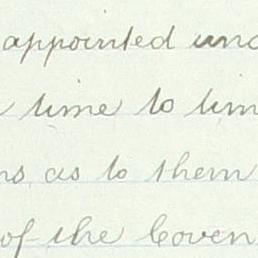 appointed und
time to tim
ns as to them
of the Coven